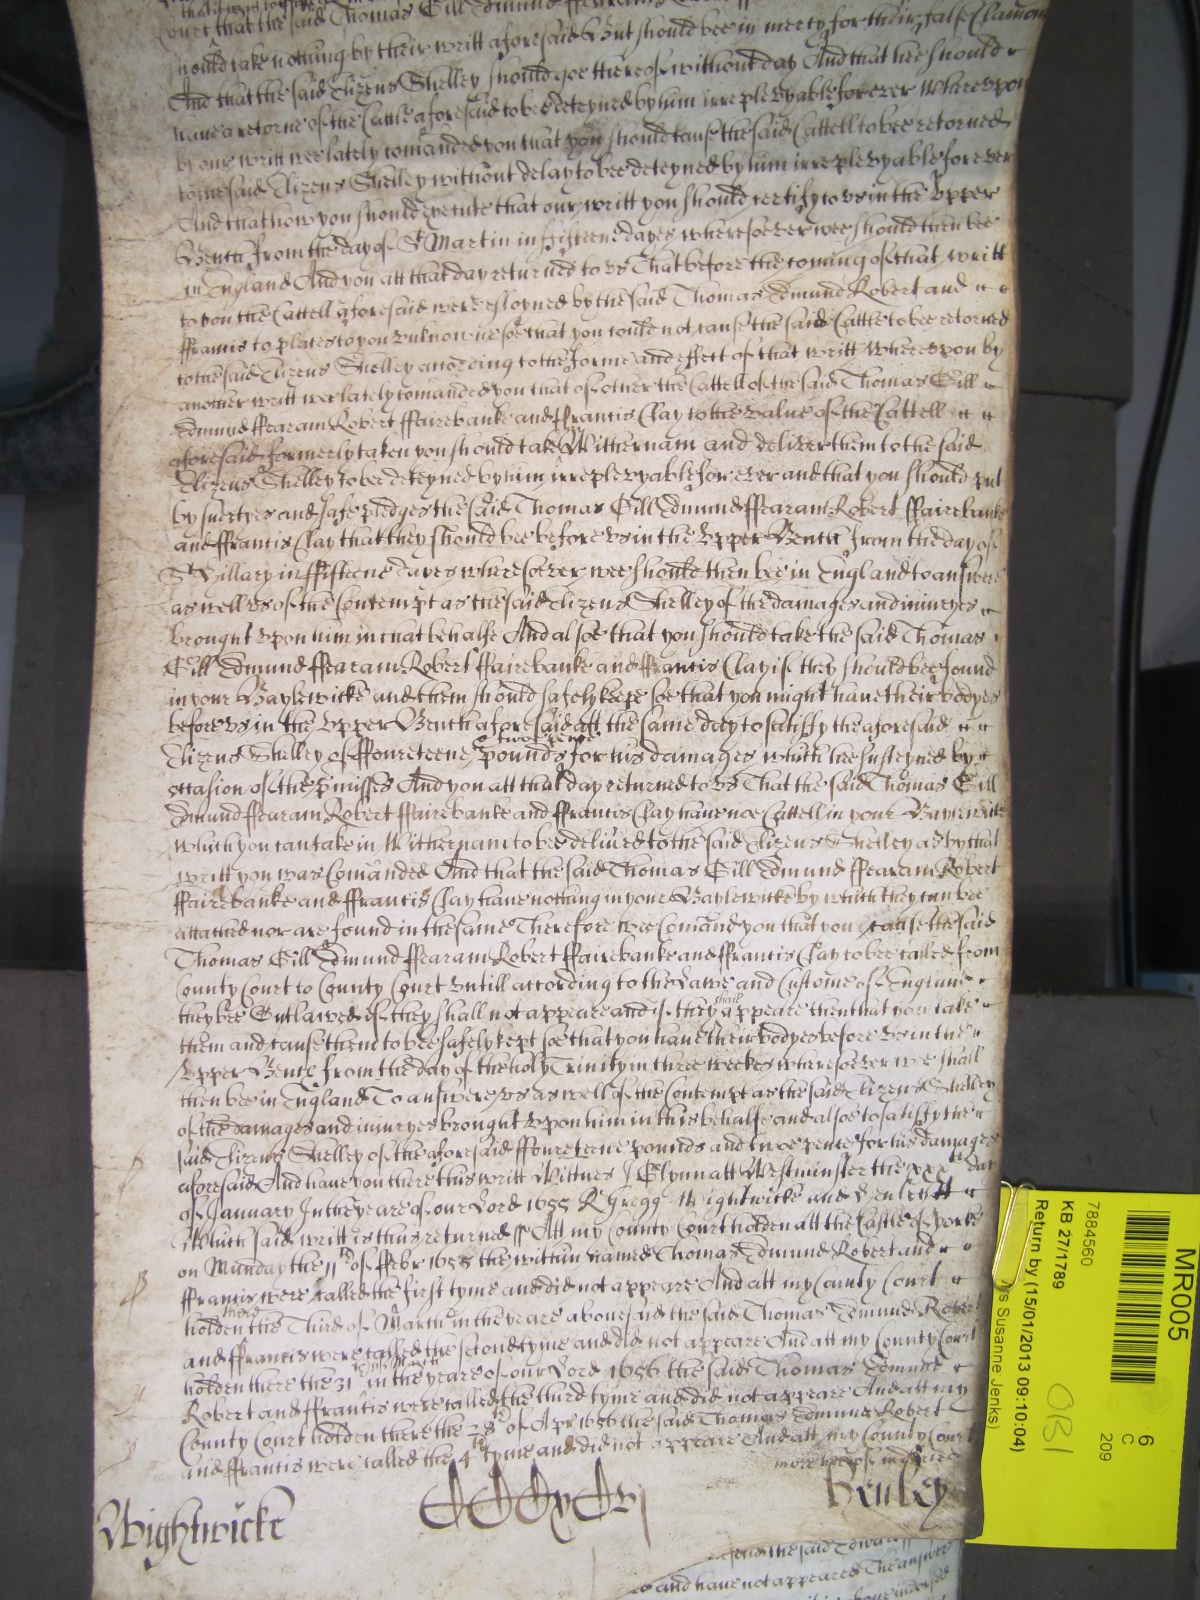 Court that the said Thomas Gill Edmund ffearam
should take nothing by their writt aforesaid But should bee in mercy for their false Clamour
And that the said Elizeus Shelley should goe thereof without day And that hee should
have a retorne of the Cattle aforesaid to bee deteyned by him irreplevyable for ever Whereupon
by our writt wee lately comanded you that you should cause the said Cattell to bee retorned
to the said Elizeus Shelley without delay to bee deteyned by him irreplevyable for ever
And that how you should execute that our writt you should certify to us in the Upper
Bench from the day of St Martin in fifteene dayes wheresoever wee should then bee
in England And you att that day returned to us That before the coming of that writt
to you the Cattell aforesaid were esloyned by the said Thomas Edmund Robert and
ffrancis to places to you unknowne soe that you could not cause the said Cattle to bee retorned
to the said Elizeus Shelley according to the forme and effect of that writt Whereupon by
another writt wee lately comanded you that of other the Cattell of the said Thomas Gill
Edmund ffearam Robert ffairebanke and ffrancis Clay to the value of the Cattell
aforesaid formerly taken you should take in Withernam and deliver them to the said
Elizeus Shelley to bee deteyned by him irreplevyable for ever and that you should put
by suertyes and safe pledges the said Thomas Gill Edmund ffearam Robert ffairebanke
and ffrancis Clay that they should bee before us in the Upper Bench from the day of
St Hillary in ffifteene dayes wheresoever wee should then bee in England to answere
as well us of the Contempt as the said Elizeus Shelley of the damages and iniuryes
brought upon him in that behalfe And alsoe that you should take the said Thomas
Gill Edmund ffearam Robert ffairebanke and ffrancis Clay if they should bee found
in your Baylewicke and them should safely keepe soe that you might have their bodyes
before us in the Upper Bench aforesaid att the same day to satisfy the aforesaid
Elizeus Shelley of ffoureteene pounds two pence for his damages which hee susteyned by
occasion of the p'misses And you att that day returned to us That the said Thomas Gill
Edmund ffearam Robert ffairebanke and ffrancis Clay have noe Cattell in your Baylewicke
which you can take in Withernam to bee deliv'ed to the said Elizeus Shelley as by that
writt you was Comanded And that the said Thomas Gill Edmund ffearam Robert
ffairebanke and ffrancis Clay have nothing in your Baylewicke by which they can bee
attached nor are found in the same Therefore wee Comand you that you cause the said
Thomas Gill Edmund ffearam Robert ffairebanke and ffrancis Clay to bee called from
County Court to County Court untill according to the Lawe and Custome of England
they bee Outlawed if they shall not appeare and if they shall appeare then that you take
them and cause them to bee safely kept soe that you have their bodyes before us in the
Upper Bench from the day of the holy Trinity in three weekes wheresoever wee shall
then bee in England To answere us as well of the Contempt as the said Elizeus Shelley
of the damages and iniuryes brought upon him in this behalfe and alsoe to satisfy the
said Elizeus Shelley of the aforesaid ffoureteene pounds and twoe pence for his damages
aforesaid And have you there this writt Wittnes J Glynn att Westminster the xxxth day
of January In the yeare of our Lord 1655 R Gregg Wightwicke and Henley
Which said writt is thus returned ss Att my County Court holden att the Castle of Yorke
on Munday the 11th of ffebr 1655 the within named Thomas Edmund Robert and
ffrancis were called the first tyme and did not appeare And att my County Court
holden there the Third of March in the yeare abovesaid the said Thomas Edmund Robert
and ffrancis were called the second tyme and did not appeare And att my County Court
holden there the 31th of March in the yeare of our Lord 1656 the said Thomas Edmund
Robert and ffrancis were called the third tyme and did not appeare And att my
County Court holden there the 28th of Apr 1656 the said Thomas Edmund Robert
and ffrancis were called the 4th tyme and did not appeare And att my County Court
Wightwicke
Henley
the said Edward
and have not appeared The answer
MR005
6
C
209
7884560
KB 27/1789
Return by (15/01/2013 09:10:04)
Susanne Jenks)
OBI